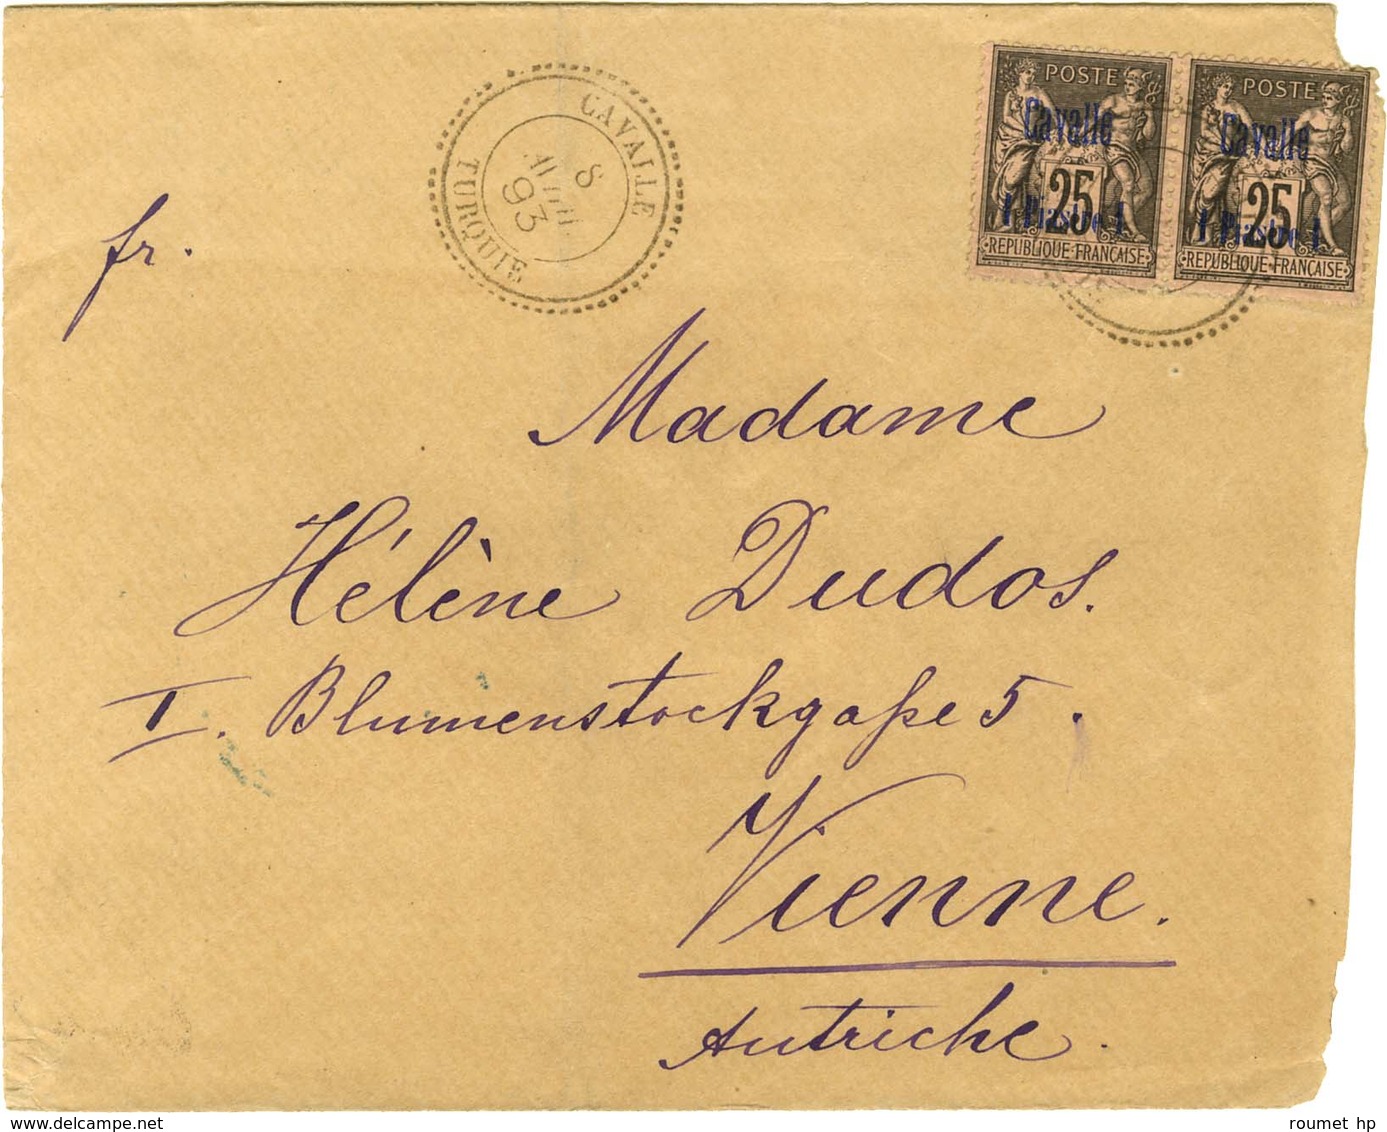 POSTE
Cavalle
25
1 Piastre 1
REPUBLIQUE FRANÇAISE
POSTE
Cavalle
25
1 Piastre 1
REPUBLIQUE FRANÇAISE
CAVALLE
8
93
TURQUIE
fr.
Madame
Hélène Dudos.
I. Blumenstockgaße 5.
Vienne.
Autriche.
roumet hp